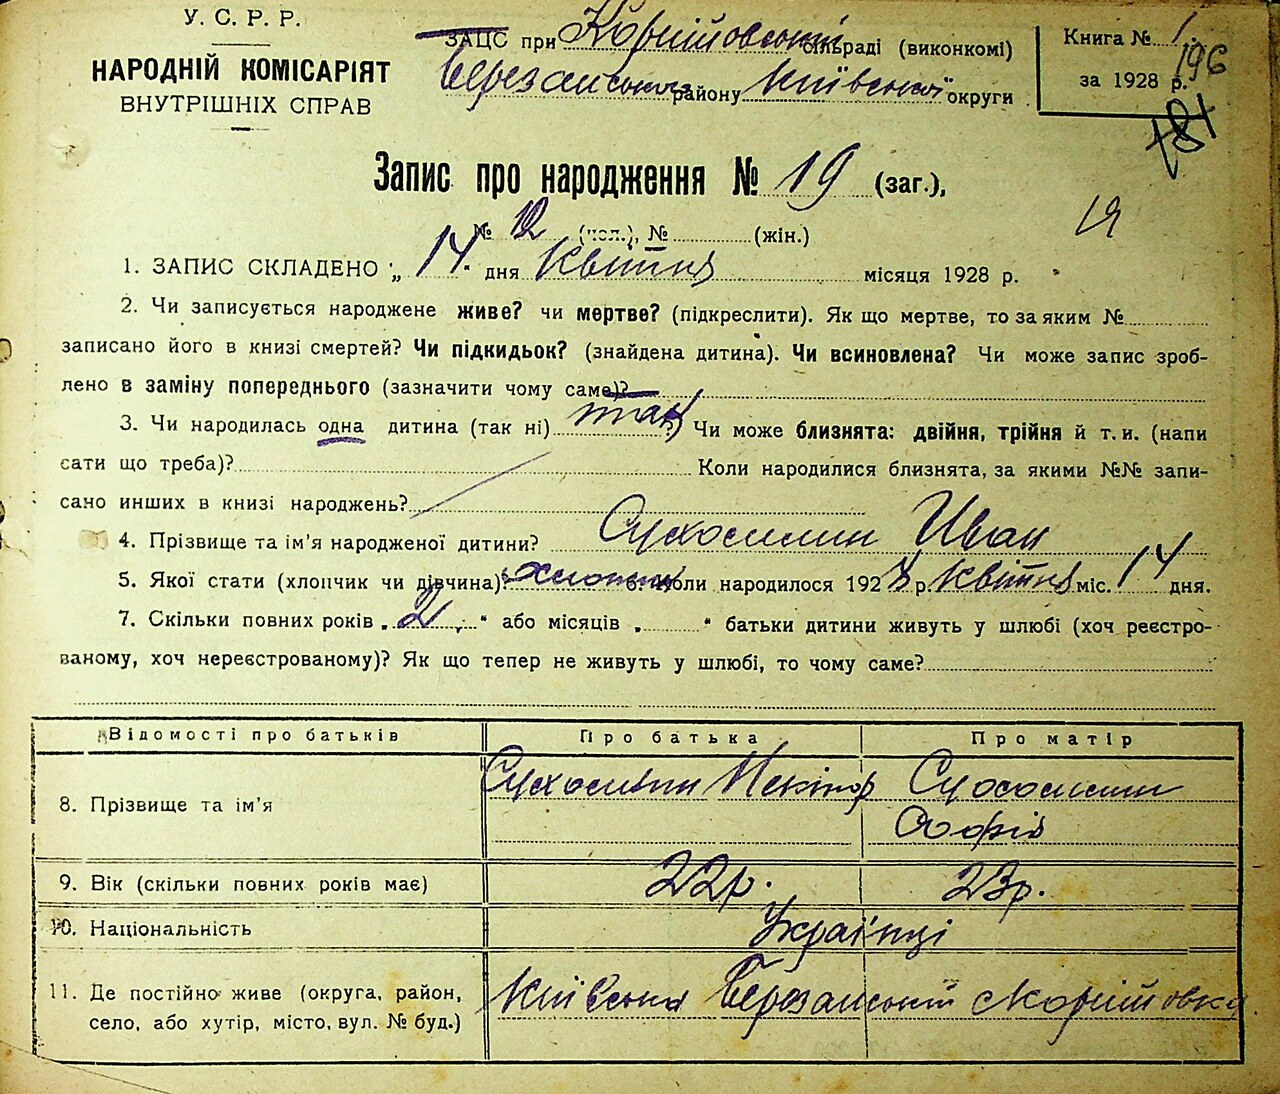 У. С. Р. Р.
НАРОДНІЙ КОМІСАРІЯТ
ВНУТРІШНІХ СПРАВ
ЗАЦС при Корніївській сільраді (виконкомі)
Березанського району Київської округи
Книга № 1
196
за 1928 р.
181
Запис про народження № 19 (заг.),
19
№ 12 (чол.), № (жін.)
1. ЗАПИС СКЛАДЕНО „ 14 " дня Квітня місяця 1928 р.
2. Чи записується народжене живе? чи мертве? (підкреслити). Як що мертве, то за яким №
записано його в книзі смертей? Чи підкидьок? (знайдена дитина). Чи всиновлена? Чи може запис зроб-
лено в заміну попереднього (зазначити чому саме)?
3. Чи народилась одна дитина (так ні) так ? Чи може близнята: двійня, трійня й т. и. (напи
сати що треба)? Коли народилися близнята, за якими №№ запи-
сано инших в книзі народжень?
4. Прізвище та ім'я народженої дитини? Сухосилин Иван
5. Якої стати (хлопчик чи дівчина)? хлопчик 6. Коли народилося 1928 р. Квітня міс. 14 дня.
7. Скільки повних років „ 2 " або місяців „ " батьки дитини живуть у шлюбі (хоч реєстро-
ваному, хоч нереєстрованому)? Як що тепер не живуть у шлюбі, то чому саме?
Відомості про батьків Про батька Про матір
8. Прізвище та ім'я Сухосилин Сухосилин
Софія
9. Вік (скільки повних років має) 22р. 23р.
10. Національність Українці
11. Де постійно живе (округа, район,
село, або хутір, місто, вул. № буд.) Київська Березанський